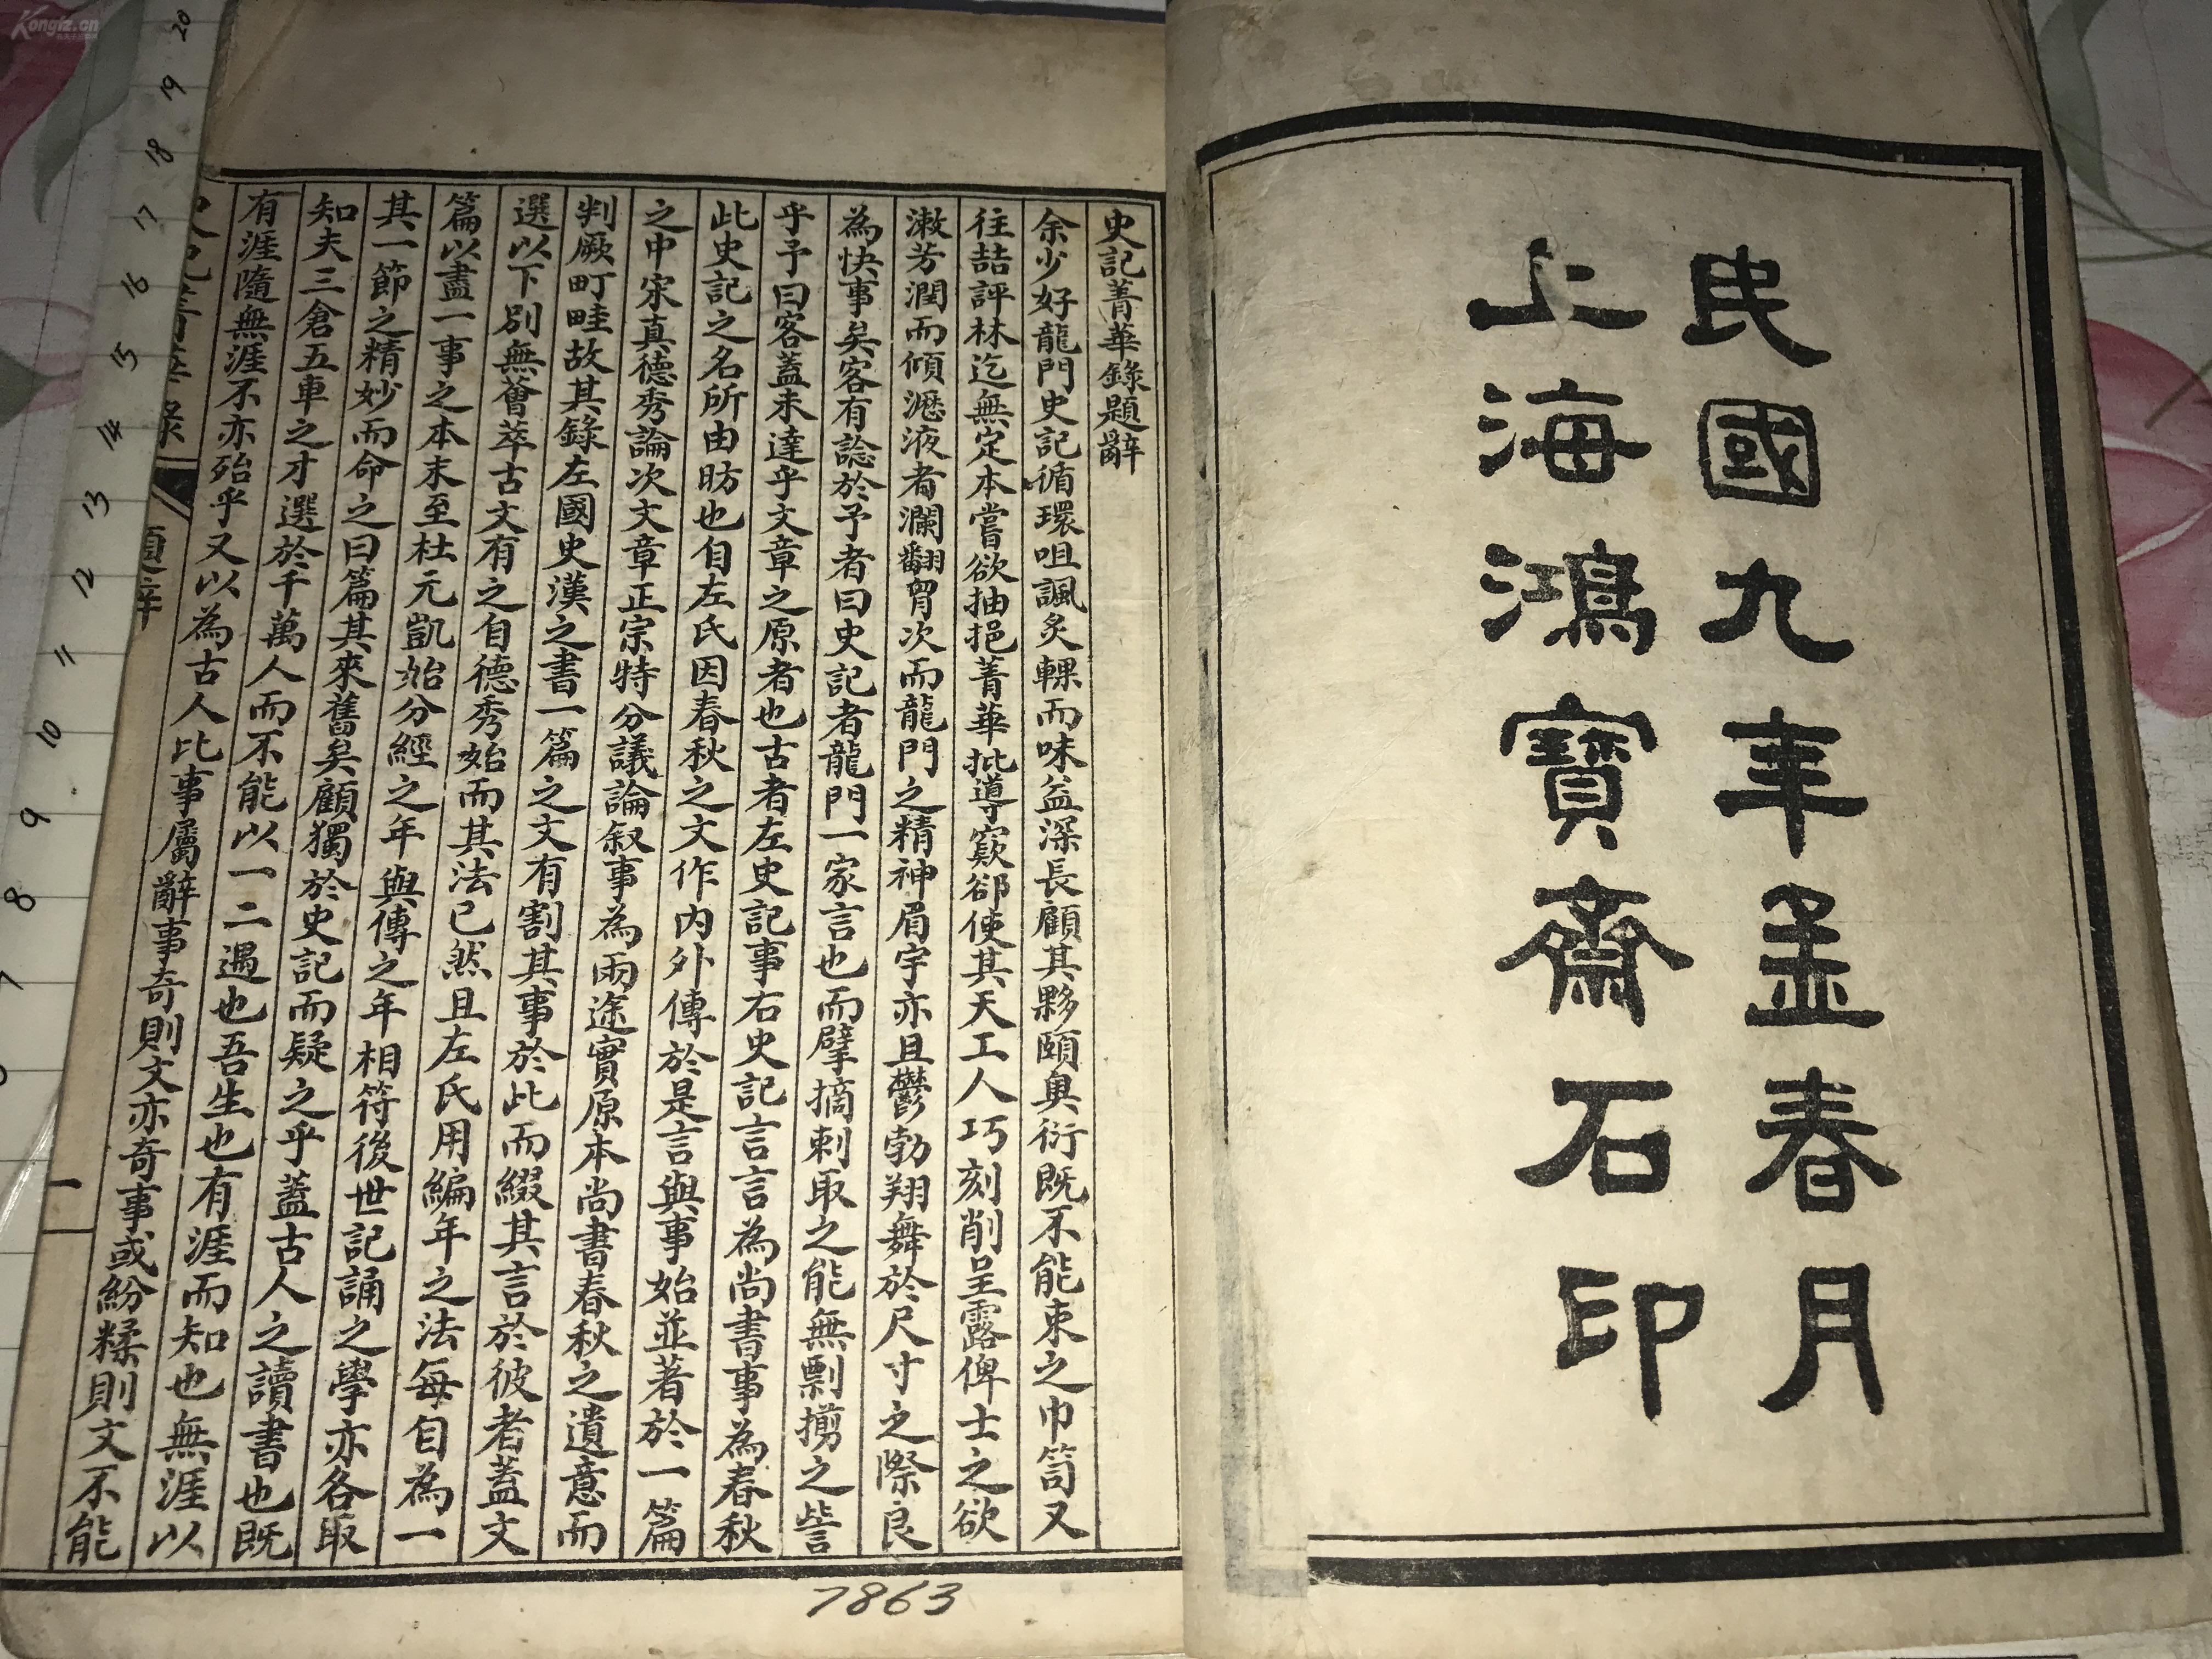 民國九年孟春月
上海鴻寶齋石印
史記菁華錄題辭
余少好龍門史記循環咀諷炙輠而味益深長顧其夥頤奧衍既不能束之巾笥又
往喆評林迄無定本嘗欲抽挹菁華批導窾郤使其天工人巧刻削呈露俾士之欲
漱芳潤而傾瀝液者瀾翻胷次而龍門之精神眉宇亦且鬱勃翔舞於尺寸之際良
為快事矣客有諗於予者曰史記者龍門一家言也而擘摘剌取之能無剽搠之訾
乎予曰客蓋未達乎文章之原者也古者左史記事右史記言言為尚書事為春秋
此史記之名所由昉也自左氏因春秋之文作內外傳於是言與事始並著於一篇
之中宋真德秀論次文章正宗特分議論叙事為兩途實原本尚書春秋之遺意而
判厥町畦故其錄左國史漢之書一篇之文有割其事於此而綴其言於彼者蓋文
選以下別無薈萃古文有之自德秀始而其法已然且左氏用編年之法每自為一
篇以盡一事之本末至杜元凱始分經之年與傳之年相符後世記誦之學亦各取
其一節之精妙而命之曰篇其來舊矣顧獨於史記而疑之乎蓋古人之讀書也既
知夫三倉五車之才選於千萬人而不能以一二遇也吾生也有涯而知也無涯以
有涯隨無涯不亦殆乎又以為古人比事屬辭事奇則文亦奇事或紛糅則文不能
史記菁華錄
題辭
一
7863
20
19
18
17
16
15
14
13
12
11
10
9
8
7
Kongfz.cn